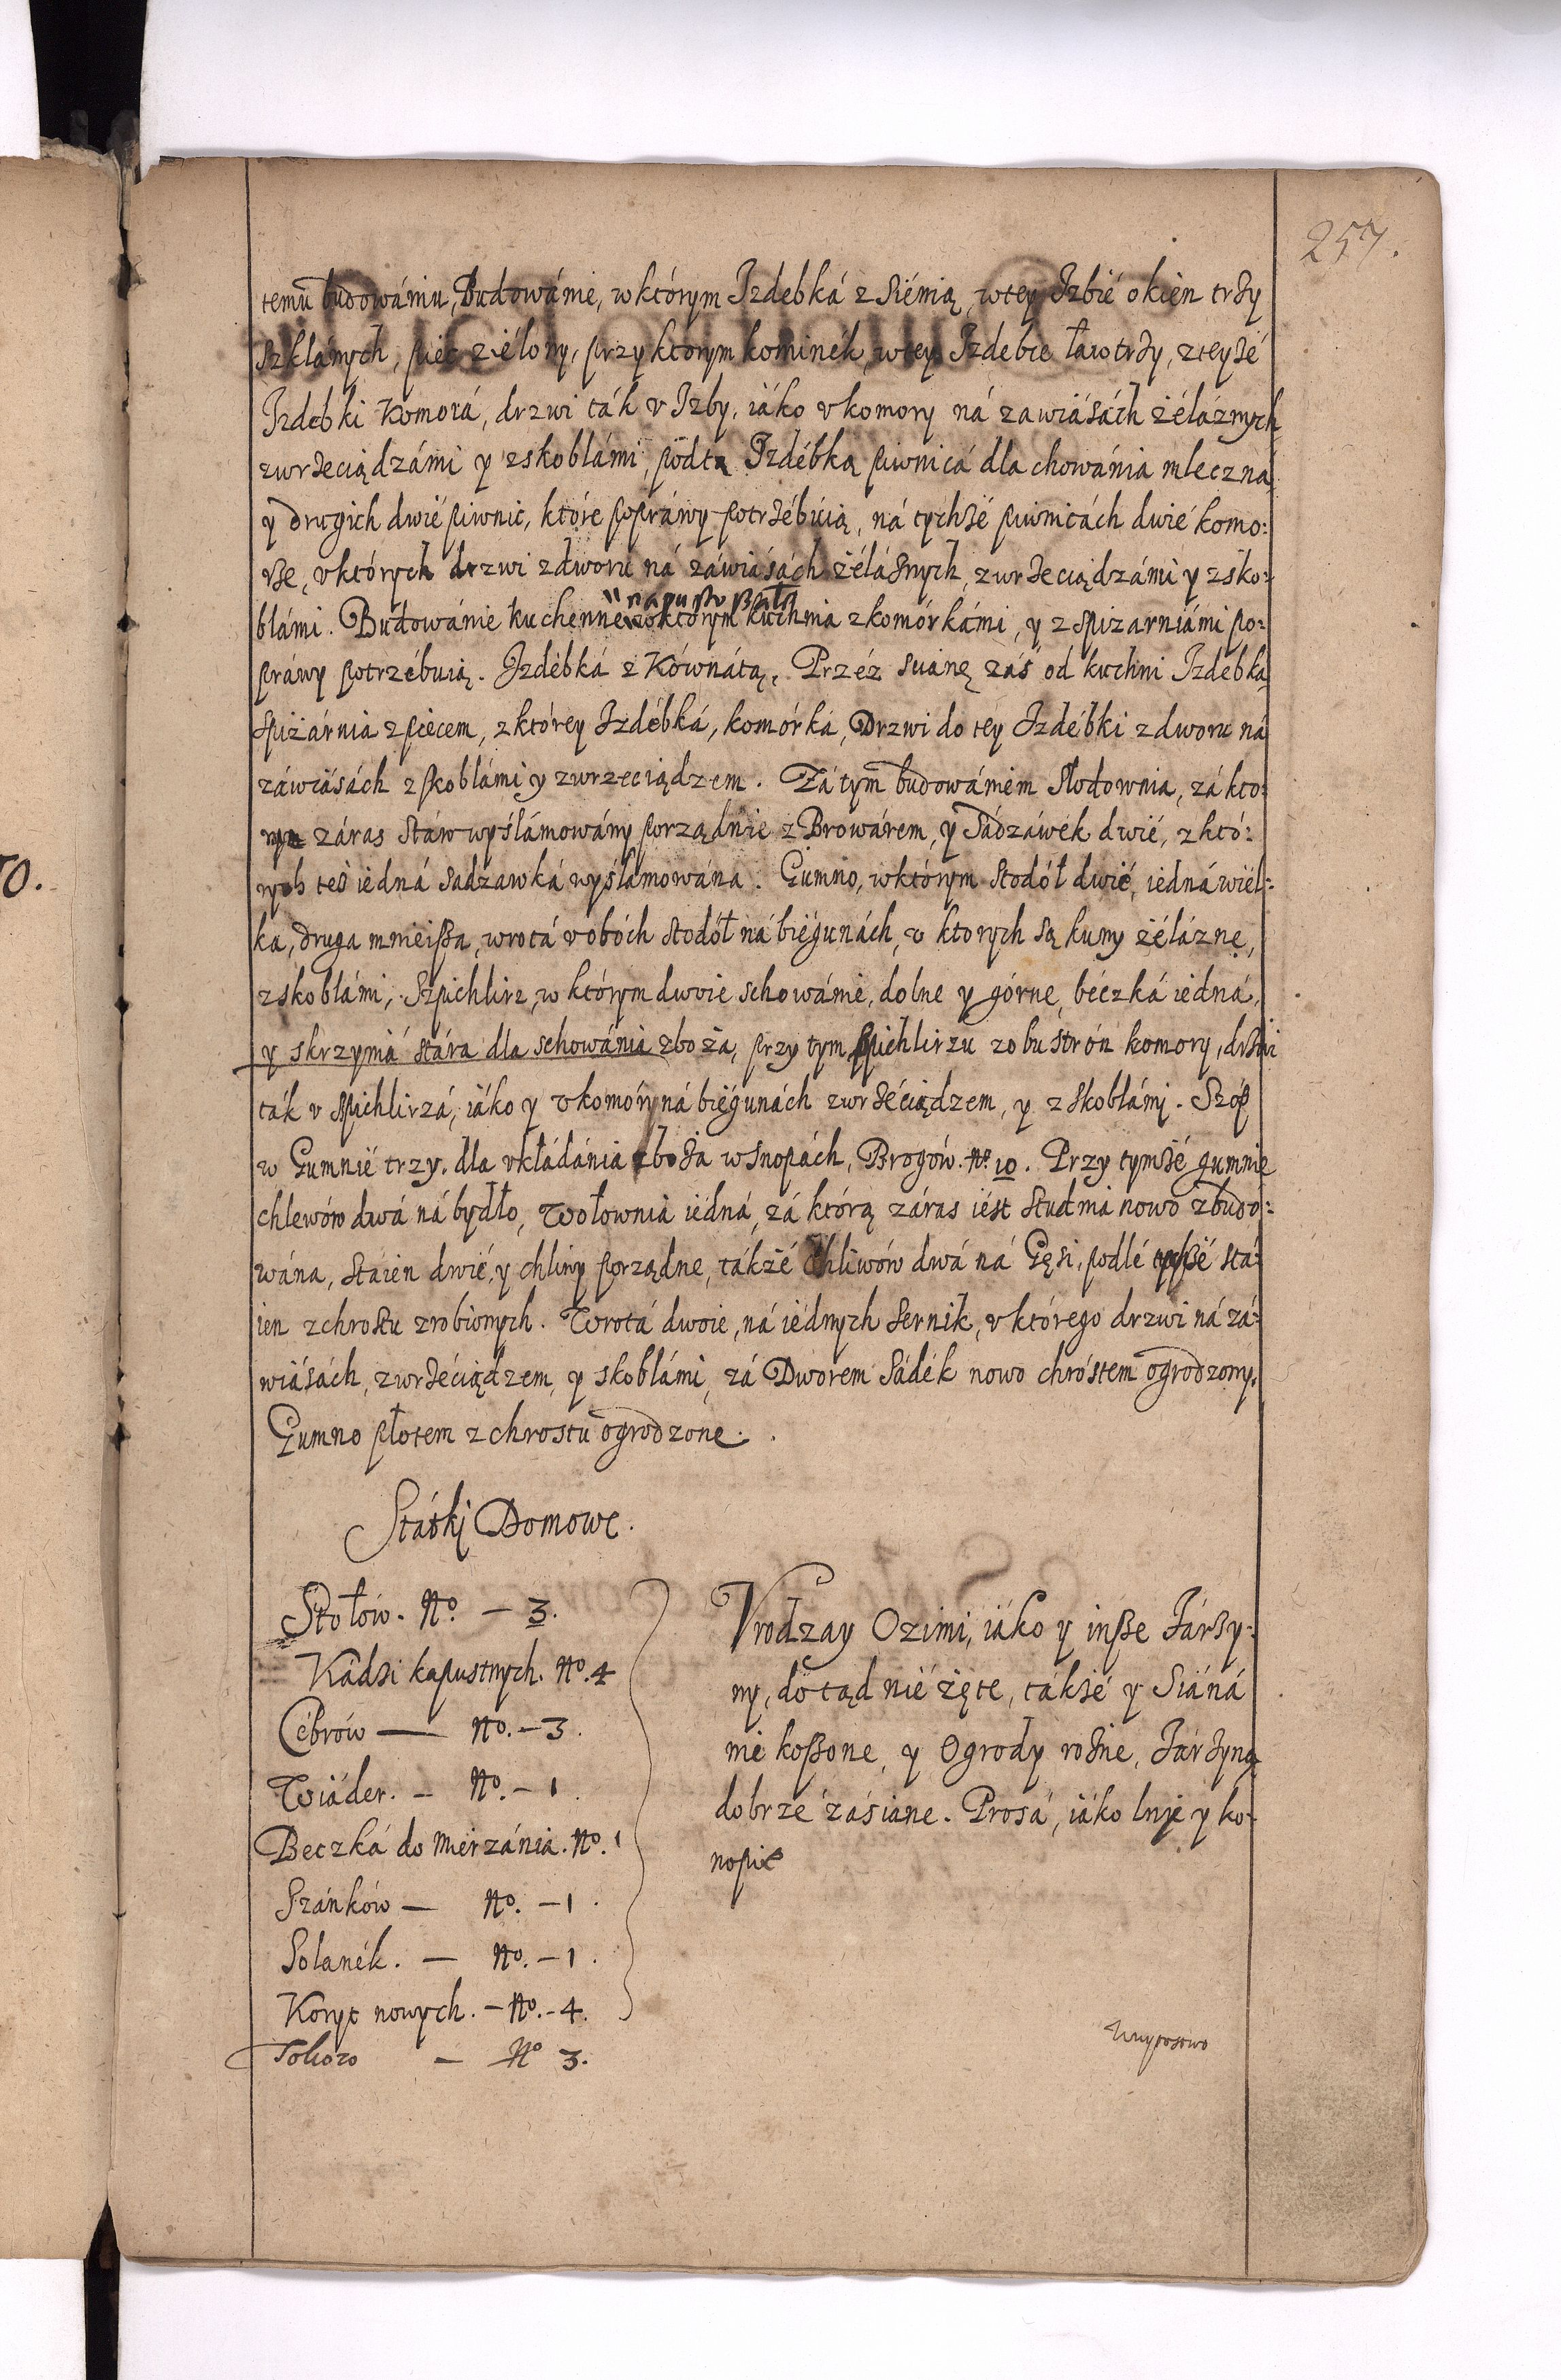 257.
temu budowániu, Budowánie, wktórym Izdebká z Siénią, wtey Izbié okien trzy
szklánych, piec ziélony, przy ktorym kominék, wtey Izdebce ław trzy, zteyże
Izdebki Komorá, drzwi ták v Izby, iáko v komory ná zawiásách żéláznych
zwrzeciądzámi y zskoblámi, podtą Izdébką piwnicá dla chowánia mleczná
y drugich dwié piwnic, które popráwy potrzébuią, ná tychże piwnicách dwié komo:
rze, v których drzwi zdworu ná záwiásách żéláznych, zwrzeciądzámi y zsko:
blámi. Budowánie kuchenne wktorym kuchnia zkomórkámi, y z spizarniámi po:
práwy potrzébuią. Izdébká z Kównátą, Przéz scianę záś od kuchni Izdebká
spiżárnia z piecem, z którey Izdébká, komórká, Drzwi do tey Izdébki zdworu ná
záwiásách z skoblámi y zwrzeciądzem. Zá tym budowániem Słodownia, zá kto:
rym záras Stáw wyszlámowány porządnie z Browárem, y Sádzáwek dwié, z któ:
rych też iedná sadzawká wyszlamowána. Gumno, wktórym Stodół dwié, iedná wiél:
ka, druga mnieißa, wrotá v obóch stodół ná biégunách, v ktorych są kuny żélázne,
zskoblámi, Szpichlirz, w którym dwoie schowánie, dolne y górne, béczká iedná,
y skrzyniá stára dla schowánia zboża, przy tym spichlirzu zobustrón komory, drzwi
ták v spichlirzá, iáko y v komóry ná biégunách zwrzéciądzem, y z skoblámi. Szóp
w Gumnié trzy, dla vkłádánia zboża wsnopách, Brogów. No 10. Przy tymże gumnie
chlewów dwá ná bydło, Wołownia iédná, zá którą záras iést Studnia nowo zbudo:
wána, Stáien dwié, y chliny porządne, tákże Chliwów dwá ná Gęsi, podlé tychże stá:
ien zchrostu zrobionych. Wrotá dwoie, ná iédnych sernik, v którego drzwi ná zá:
wiásách, zwrzéciądzem, y skoblámi, zá Dworem Sádék nowo chróstem ogrodzony.
Gumno płotem z chrostu ogrodzone.
Státki Domowe.
Stołów. No. – 3.
Kádzi kapustnych. No. 4
Cébrów — No. – 3.
Wiáder. – No. – 1.
Beczká do mierzánia. No. 1
Szánków — No. – 1.
Solanék. — No. – 1.
Koryt nowych. – No. – 4.
No 3.
Vrodzay Ozimi, iáko y inße Járzy:
ny, dotąd nié żęte, tákże y Siáná
nie koßone, y Ogrody rożne, Járzyną
dobrze záśiane. Prosá, iáko lny y ko:
nopie